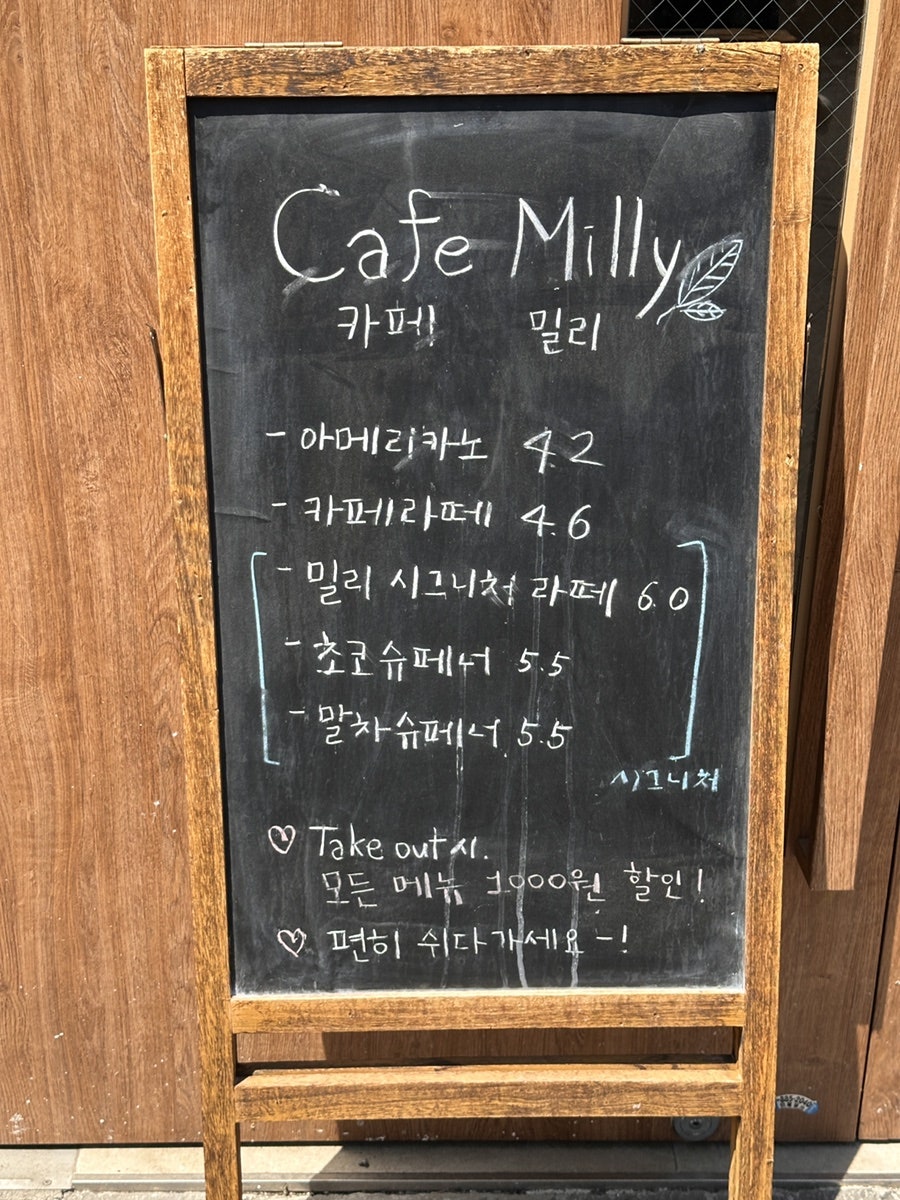 Cafe Milly
카페 밀리
- 아메리카노 4.2
- 카페라떼 4.6
- 밀리 시그니처 라떼 6.0
- 초코슈페너 5.5
- 말차슈페너 5.5
시그니처
♡ Take out 시.
모든 메뉴 1000원 할인!
♡ 편히 쉬다가세요-!